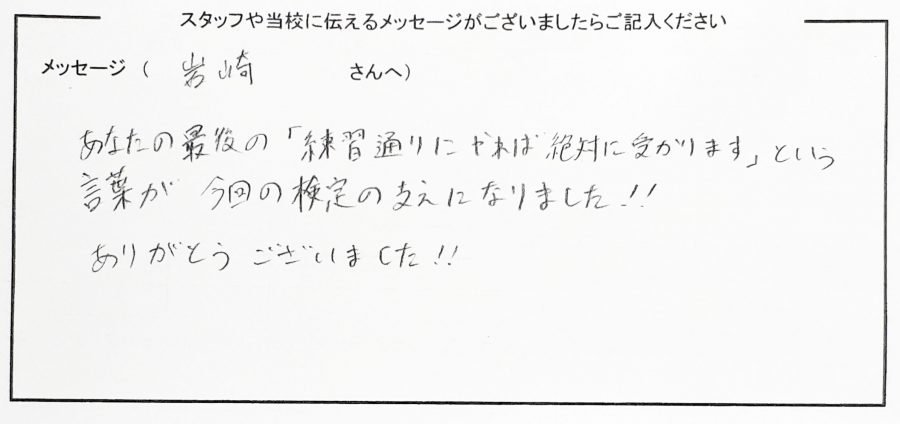 スタッフや当校に伝えるメッセージがございましたらご記入ください
メッセージ ( 岩崎 さんへ)
あなたの最後の「練習通りにやれば絶対に受かります」という
言葉が 今回の検定の支えになりました!!
ありがとうございました!!